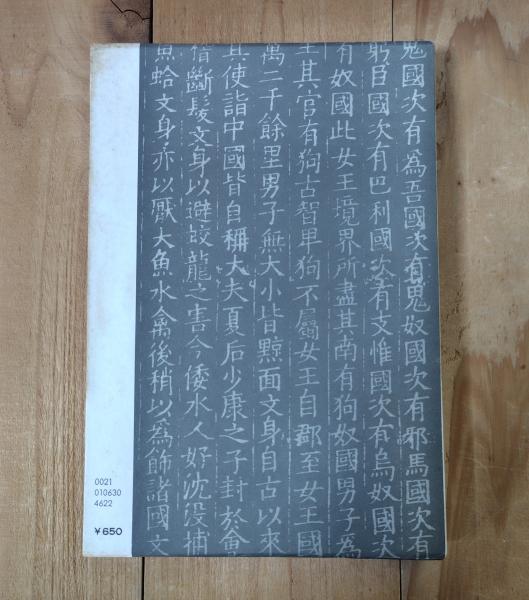 鬼國次有為吾國次有鬼奴國次有邪馬國次有
躬臣國次有巴利國次有支惟國次有烏奴國次
有奴國此女王境界所盡其南有狗奴國男子為
王其官有狗古智卑狗不屬女王自郡至女王國
萬二千餘里男子無大小皆黥面文身自古以來
其使詣中國皆自稱大夫夏后少康之子封於會
稽斷髮文身以避蛟龍之害今倭水人好沈没捕
魚蛤文身亦以厭大魚水禽後稍以為飾諸國文
0021
010630
4622
¥650